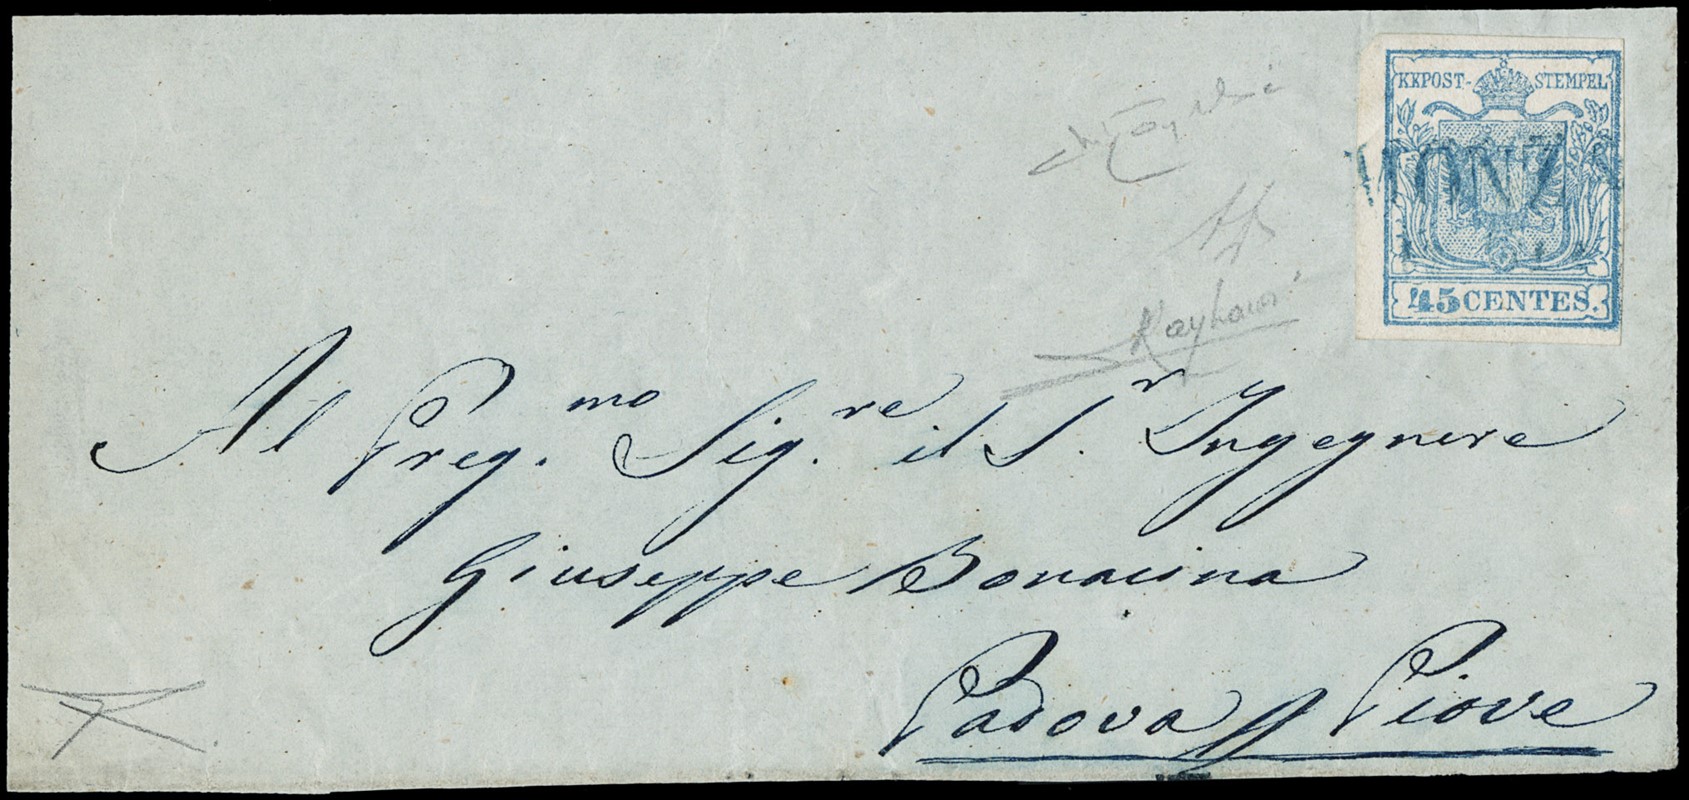 KKPOST-STEMPEL
MONZA
45 CENTES.
Al Preg.mo Sig.re il S.r Ingegnere
Giuseppe Bonacina
Padova p Piove